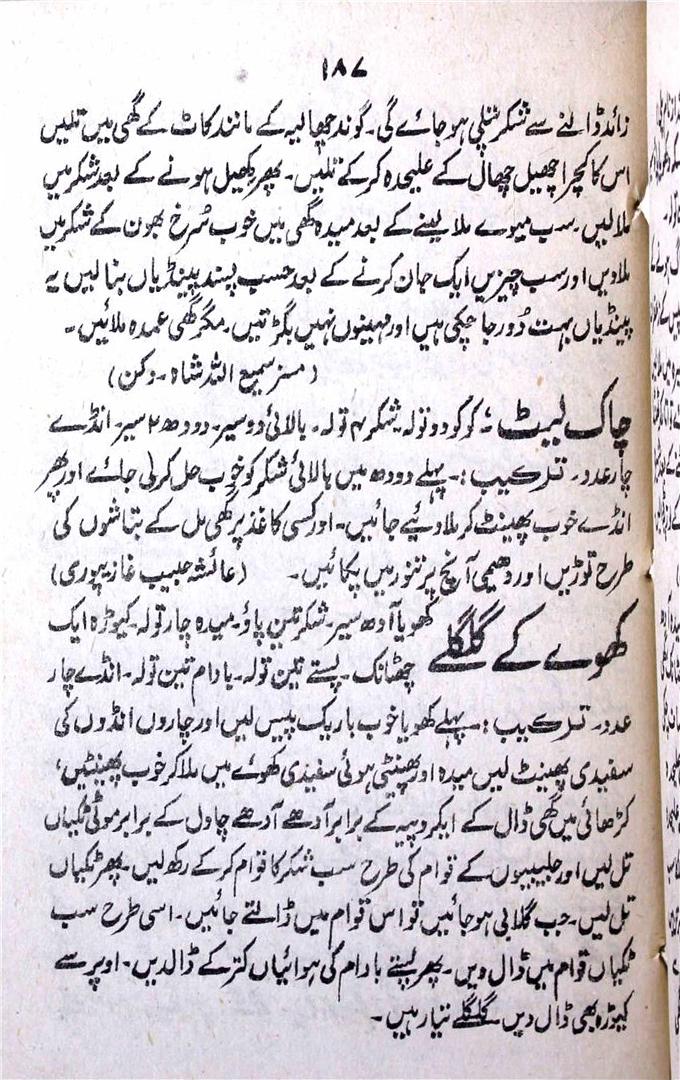 ۱۸۷
زائد ڈالنے سے شکر پتلی ہو جائے گی۔ گوند چھالیہ کے مانند کاٹ کے گھی میں تلیں
اس کا کچرا چھیل چھال کے علیحدہ کر کے تلیں۔ پھر کھیل ہونے کے بعد شکر میں
ملا لیں۔ سب میوے ملا لینے کے بعد میدہ گھی میں خوب سُرخ بھون کے شکر میں
ملا دیں اور سب چیزیں ایک جان کرنے کے بعد حسب پسند پینڈیاں بنا لیں یہ
پینڈیاں بہت دُور جا چکی ہیں اور مہینوں نہیں بگڑتیں۔ مگر گھی عمدہ ملائیں۔
(مسز سمیع اللہ شاہ۔ دکن)
چاک لیٹ: کوکو دو تولہ۔ شکر ۴ تولہ۔ بالائی دو سیر۔ دودھ ۲ سیر۔ انڈے
چار عدد۔ ترکیب:۔ پہلے دودھ میں بالائی شکر کو خوب حل کر لی جائے اور پھر
انڈے خوب پھینٹ کر ملا دیئے جائیں۔ اور کسی کاغذ پر گھی مل کے بتاشوں کی
طرح توڑیں اور دھیمی آنچ پر تنور میں پکائیں۔ (عائشہ حبیب غازیپوری)
کھوے کے گلگلے کھویا آدھ سیر۔ شکر تین پاؤ۔ میدہ چار تولہ۔ کیوڑہ ایک
چھٹانک۔ پستے تین تولہ۔ بادام تین تولہ۔ انڈے چار
عدد۔ ترکیب:۔ پہلے کھویا خوب باریک پیس لیں اور چاروں انڈوں کی
سفیدی پھینٹ لیں میدہ اور پھینٹی ہوئی سفیدی کھوئے میں ملا کر خوب پھینٹیں،
کڑھائی میں گھی ڈال کے ایکروپیہ کے برابر آدھے آدھے چاول کے برابر موٹی ٹکیاں
تل لیں اور جلیبیوں کے قوام کی طرح سب شکر کا قوام کر کے رکھ لیں۔ پھر ٹکیاں
تل لیں۔ جب گلابی ہو جائیں تو اس قوام میں ڈالتے جائیں۔ اسی طرح سب
ٹکیاں قوام میں ڈال دیں۔ پھر پستے بادام کی ہوائیاں کتر کے ڈالدیں۔ اوپر سے
کیوڑہ بھی ڈال دیں گلگلے تیار ہیں۔